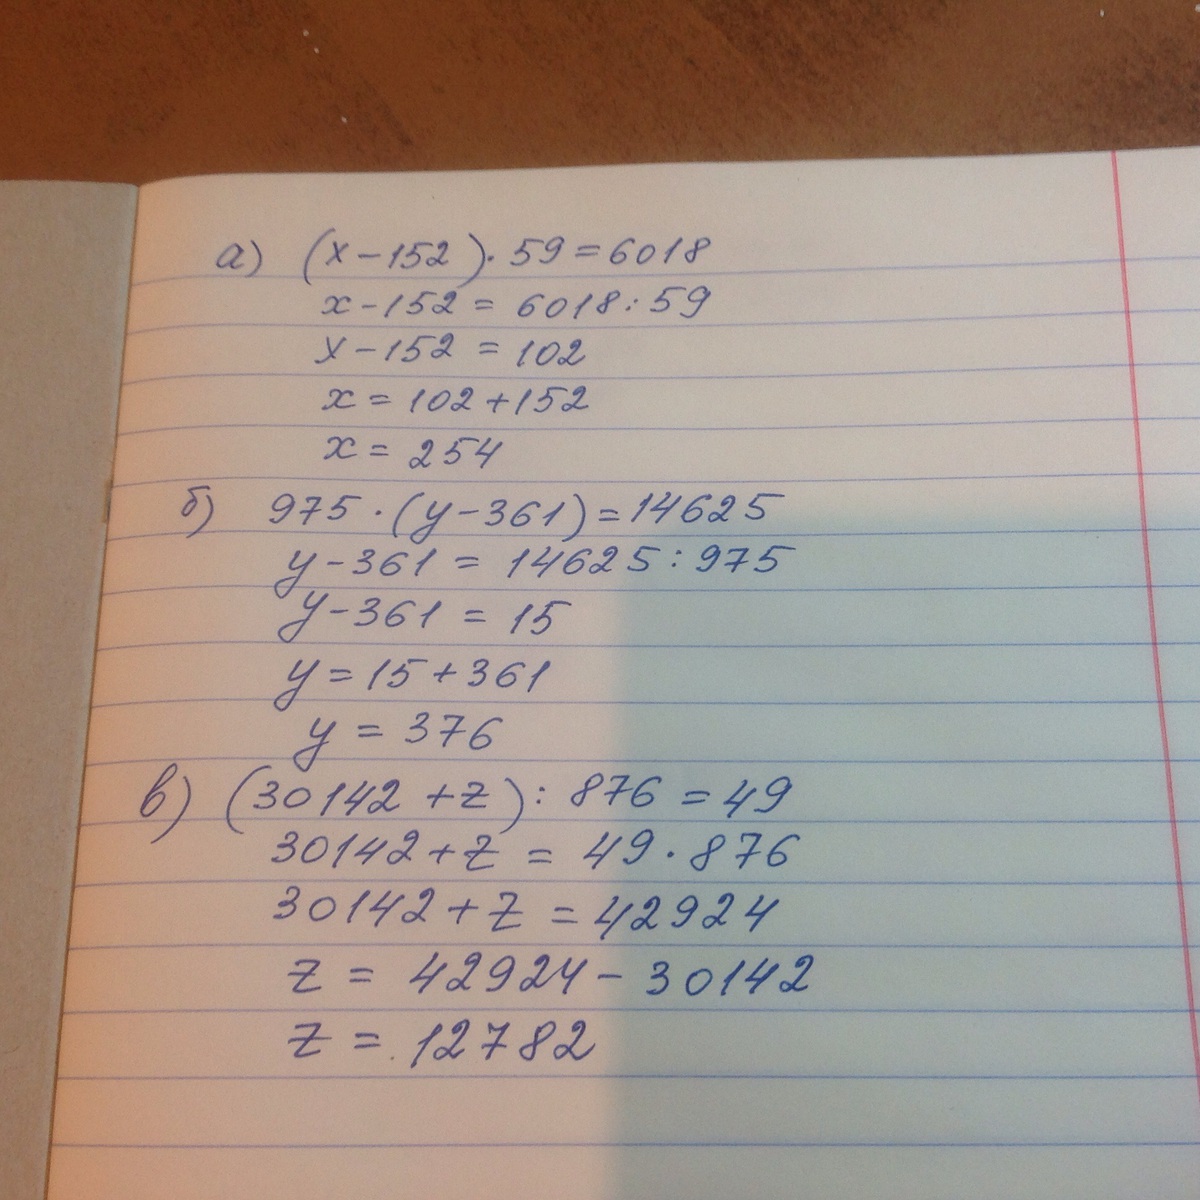 а) (x-152)·59=6018
x-152=6018:59
x-152=102
x=102+152
x=254
б) 975·(y-361)=14625
y-361=14625:975
y-361=15
y=15+361
y=376
в) (30142+z):876=49
30142+z=49·876
30142+z=42924
z=42924-30142
z=12782